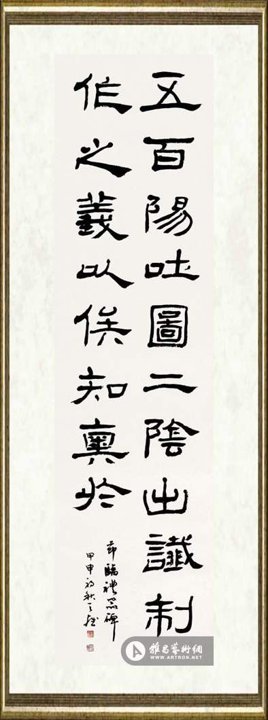 五百陽吐圖二陰出讖制
作之義以俟知奧於
節臨禮器碑
甲申初秋
雅昌藝術網
WWW.ARTRON.NET